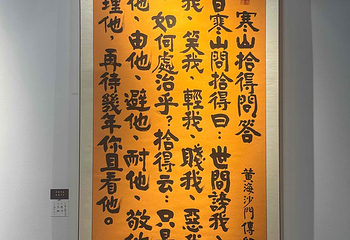 寒山拾得問答
黃海沙門傳印
日寒山問拾得曰：世間謗我、
我、笑我、輕我、賤我、惡
如何處治乎？拾得云：只是
他、由他、避他、耐他、敬
理他，再待幾年你且看他。